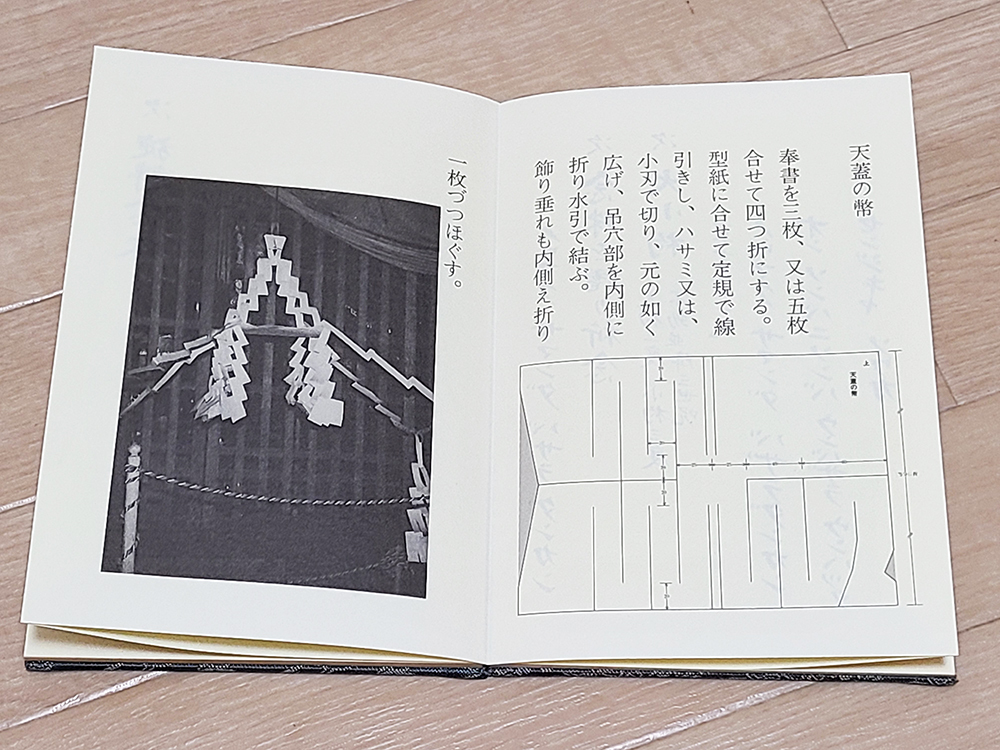 天蓋の幣
奉書を三枚、又は五枚
合せて四つ折にする。
型紙に合せて定規で線
引きし、ハサミ又は、
小刃で切り、元の如く
広げ、吊穴部を内側に
折り水引で結ぶ。
飾り垂れも内側え折り
上
天蓋の幣
一枚づつほぐす。